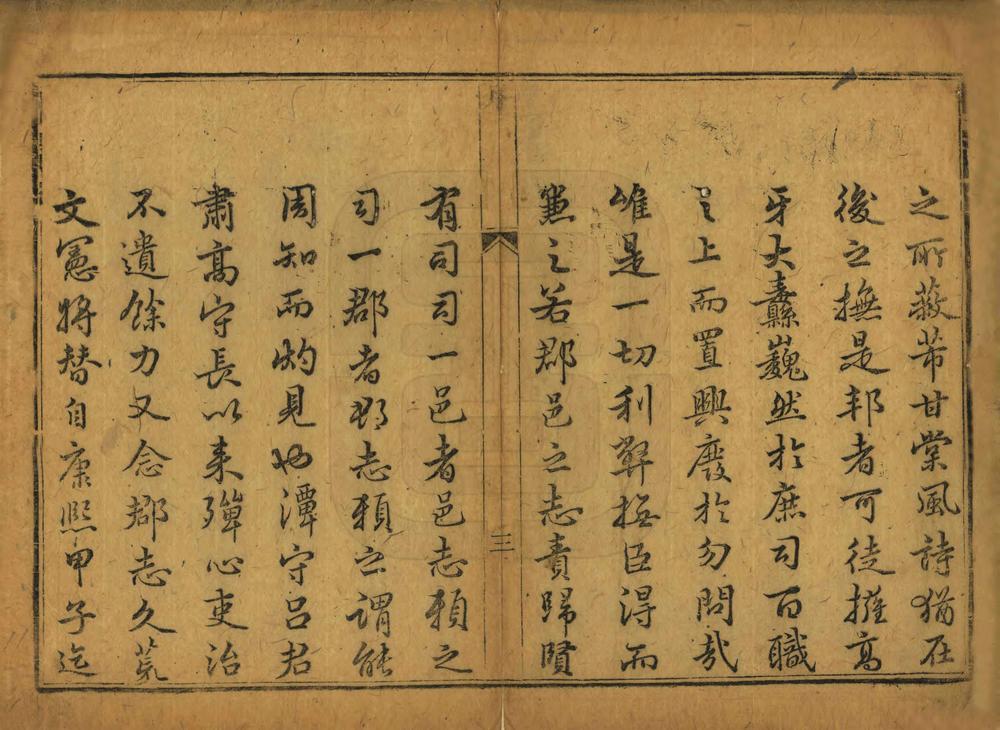 之所蔽芾甘棠風詩猶在
後之撫是邦者可徒擁高
牙大纛巍然於庶司百職
之上而置興廢於勿問哉
雖是一切利弊撫臣得而
盡之若郡邑之志責歸賢
三
有司司一邑者邑志賴之
司一郡者郡志賴之謂能
周知而灼見也潭守呂君
肅高守長以來殫心吏治
不遺餘力又念郡志久荒
文憲將替自康熙甲子迄